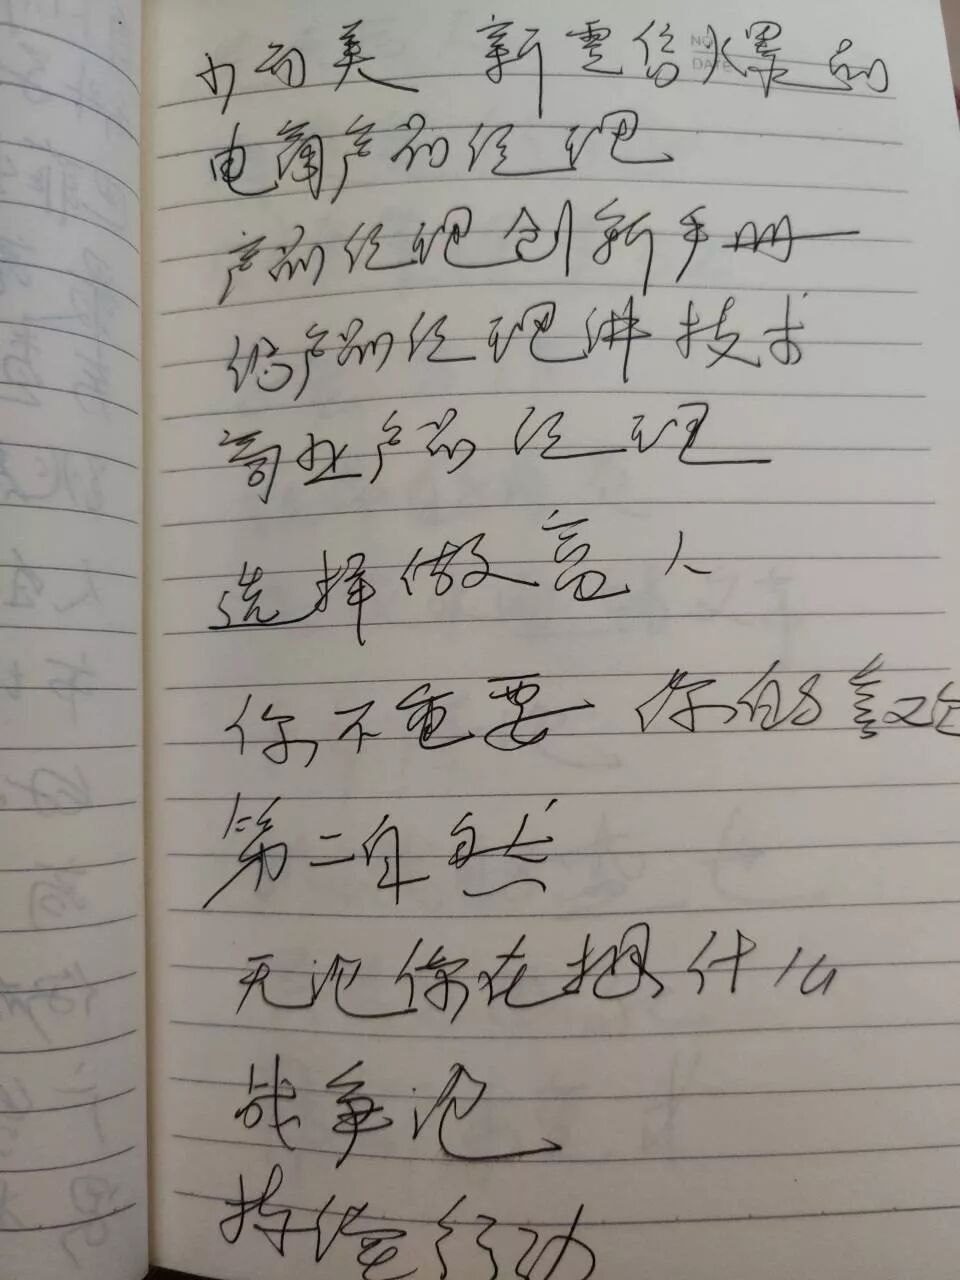 小而美 新零售爆品
NO
DATE
电商产品经理
产品经理创新手册
给产品经理讲技术
商业产品经理
选择做富人
你不重要 你的喜欢
第二自然
无论你在想什么
战争论
持续行动